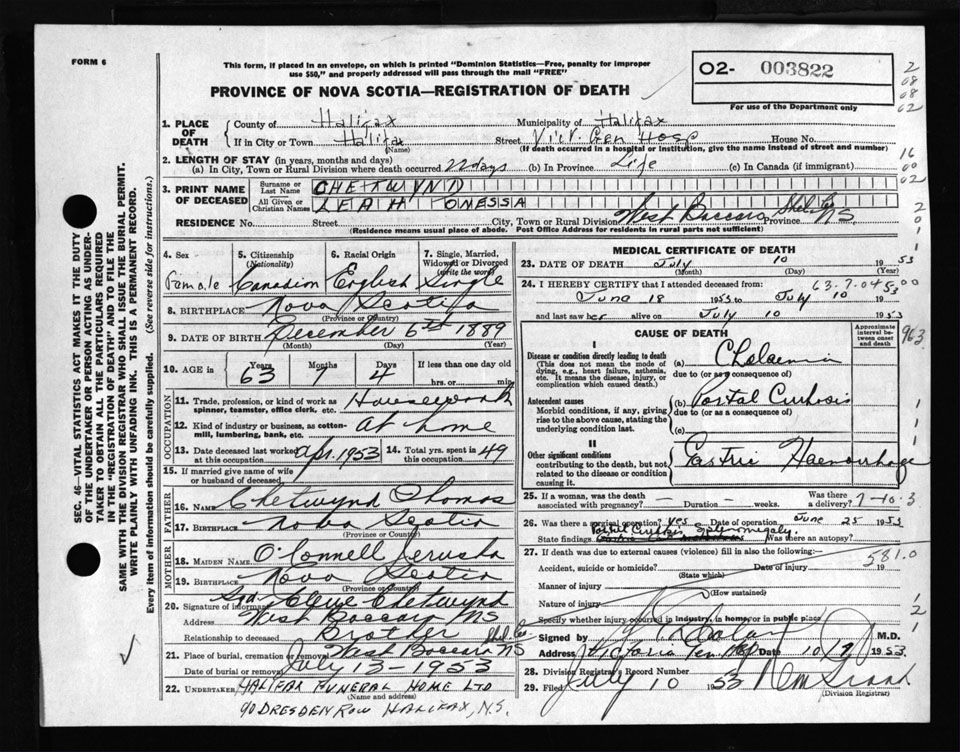 FORM 6
This form, if placed in an envelope, on which is printed "Dominion Statistics—Free, penalty for improper
use $50," and properly addressed will pass through the mail "FREE"
PROVINCE OF NOVA SCOTIA—REGISTRATION OF DEATH
O2- 003822
For use of the Department only
2
08
08
02
1. PLACE OF DEATH
County of Halifax Municipality of Halifax
If in City or Town Halifax Street Vict. Gen Hosp House No.
(Name) (If death occurred in a hospital or institution, give the name instead of street and number)
2. LENGTH OF STAY (in years, months and days)
(a) In City, Town or Rural Division where death occurred 22 days (b) In Province Life (c) In Canada (if immigrant)
16
00
02
3. PRINT NAME OF DECEASED
Surname or Last Name CHETWYND
All Given or Christian Names LEAH ONESSA
RESIDENCE No. Street City, Town or Rural Division West Baccaro Province NS
(Residence means usual place of abode. Post Office Address for residents in rural parts not sufficient)
4. Sex 5. Citizenship (Nationality) 6. Racial Origin 7. Single, Married, Widowed or Divorced (write the word)
Female Canadian English Single
8. BIRTHPLACE Nova Scotia
(Province or Country)
9. DATE OF BIRTH December 6th 1889
(Month) (Day) (Year)
10. AGE in Years Months Days If less than one day old
63 7 4 hrs. or min.
OCCUPATION
11. Trade, profession, or kind of work as spinner, teamster, office clerk, etc. Housework
12. Kind of industry or business, as cotton-mill, lumbering, bank, etc. at home
13. Date deceased last worked at this occupation Apr. 1953 14. Total yrs. spent in this occupation 49
15. If married give name of wife or husband of deceased
FATHER
16. Name Chetwynd Thomas
17. Birthplace Nova Scotia
(Province or Country)
MOTHER
18. Maiden Name O'Connell Jerusha
19. Birthplace Nova Scotia
(Province or Country)
20. Signature of informant Sgd Clyve Chetwynd
Address West Baccaro NS
Relationship to deceased Brother
Shel. Co.
21. Place of burial, cremation or removal West Baccaro NS
Date of burial or removal July 13-1953
22. Undertaker HALIFAX FUNERAL HOME LTD
(Name and address)
90 DRESDEN ROW HALIFAX, N.S.
MEDICAL CERTIFICATE OF DEATH
23. DATE OF DEATH July 10 1953
(Month) (Day) (Year)
24. I HEREBY CERTIFY that I attended deceased from 63-7-04
June 18 1953 to July 10 1953
and last saw her alive on July 10 1953
CAUSE OF DEATH
Approximate interval between onset and death
963
I
Disease or condition directly leading to death
(This does not mean the mode of dying, e.g., heart failure, asthenia, etc. It means the disease, injury, or complication which caused death.)
(a) Cholaemia
due to (or as consequence of)
Antecedent causes
Morbid conditions, if any, giving rise to the above cause, stating the underlying condition last.
(b) Portal Cirrhosis
due to (or as consequence of)
(c)
II
Other significant conditions
contributing to the death, but not related to the disease or condition causing it.
Gastric Haemorrhage
25. If a woman, was the death associated with pregnancy? - Duration - weeks. Was there a delivery?
7-10-3
26. Was there a surgical operation? yes Date of operation June 25 1953
State findings Portal Cirrhosis Splenomegaly. Was there an autopsy?
27. If death was due to external causes (violence) fill in also the following:—
581.0
Accident, suicide or homicide? Date of injury 19
(State which)
Manner of injury
(How sustained)
Nature of injury
Specify whether injury occurred in industry, in home, or in public place
Signed by M.D.
Address Victoria Gen Hosp Date 10/7 1953.
28. Division Registrar's Record Number
29. Filed July 10 1953
(Division Registrar)
SEC. 46—VITAL STATISTICS ACT MAKES IT THE DUTY
OF THE UNDERTAKER OR PERSON ACTING AS UNDER-
TAKER TO OBTAIN ALL THE PARTICULARS REQUIRED
IN THE "REGISTRATION OF DEATH" AND TO FILE THE
SAME WITH THE DIVISION REGISTRAR WHO SHALL ISSUE THE BURIAL PERMIT.
WRITE PLAINLY WITH UNFADING INK. THIS IS A PERMANENT RECORD.
Every item of information should be carefully supplied. (See reverse side for instructions.)